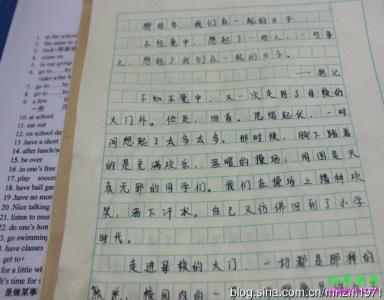 1. at the school
2. the same to
3. look
4. come on
5. in our group
6. go to
7. go to
8. go
9. a few
10. at school
11. eat out
12. on school day
13. have a short
14. after lunch/s
15. be over
16. in one's free
17. play soccer
18. have ball gam
19. have no more
20. Nice talking
21. listen to mus
22. do one's hom
23. go swimming
24. have classes
get to+
for a little wh
's time to do
是做某事
那些年,我们在一起的日子
不经意中,想起了一些人,一些事
儿,想起了我们在一起的日子。
——题记
不知不觉中,又一次走到了母校的
大门外。但是,回首。思绪起伏,一时
间想起了太多太多。那时候,脚下踏着
的是充满欢乐,温暖的操场;周围是天
真无邪的同学们。我们在操场上挥洒欢
笑,洒下汗水。自己又仿佛回到了小学
时代。
走进母校的大门,一切都是那样的
校园内的一
blog.sina.com.cn/mnzm1971